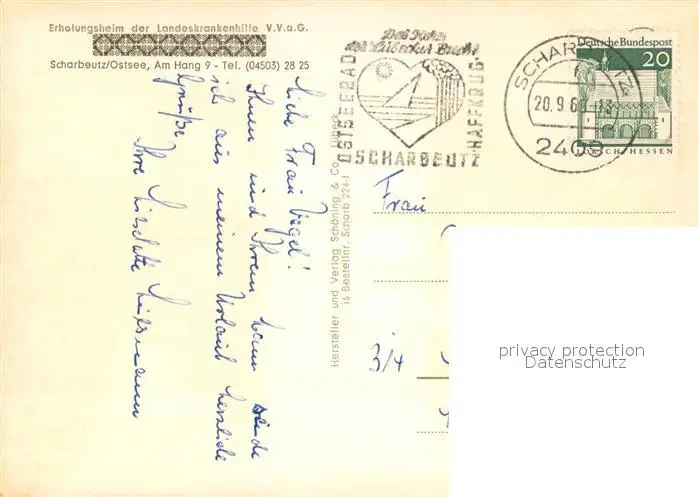 Erholungsheim der Landeskrankenhilfe V.V.a.G.
Scharbeutz/Ostsee, Am Hang 9 - Tel. (04503) 28 25
Das Herz
der Lübecker Bucht
OSTSEEBAD
HAFFKRUG
SCHARBEUTZ
SCHARBEUTZ
20.9.6
2409
Deutsche Bundespost
20
LORSCH/HESSEN
Liebe Frau Vegel!
Ihnen und Ihrem Mann sende
ich aus meinem Urlaub herzliche
Grüße.
Ihre Liselotte
Hersteller und Verlag Schöning & Co., Lübeck
is Bestellnr. Scharb 224-I
Frau
3/4
privacy protection
Datenschutz